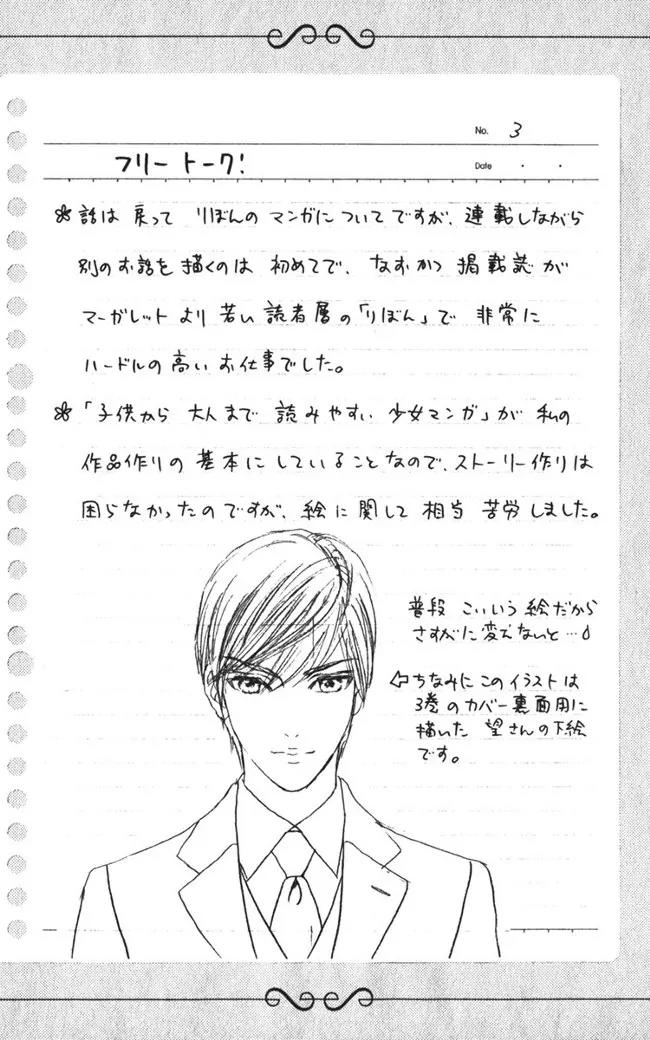 No. 3
フリートーク!
Date ・ ・
話は戻って りぼんの マンガについてですが、連載しながら
別のお話を描くのは 初めてで、なおかつ 掲載誌が
マーガレットより 若い読者層の「りぼん」で 非常に
ハードルの高いお仕事でした。
「子供から 大人まで 読みやすい 少女マンガ」が 私の
作品作りの 基本にしていることなので、ストーリー作りは
困らなかったのですが、絵に関して 相当 苦労しました。
普段 こいいう 絵だから
さすがに変えないと…
ちなみに このイラストは
3巻のカバー裏面用に
描いた 望さんの下絵
です。